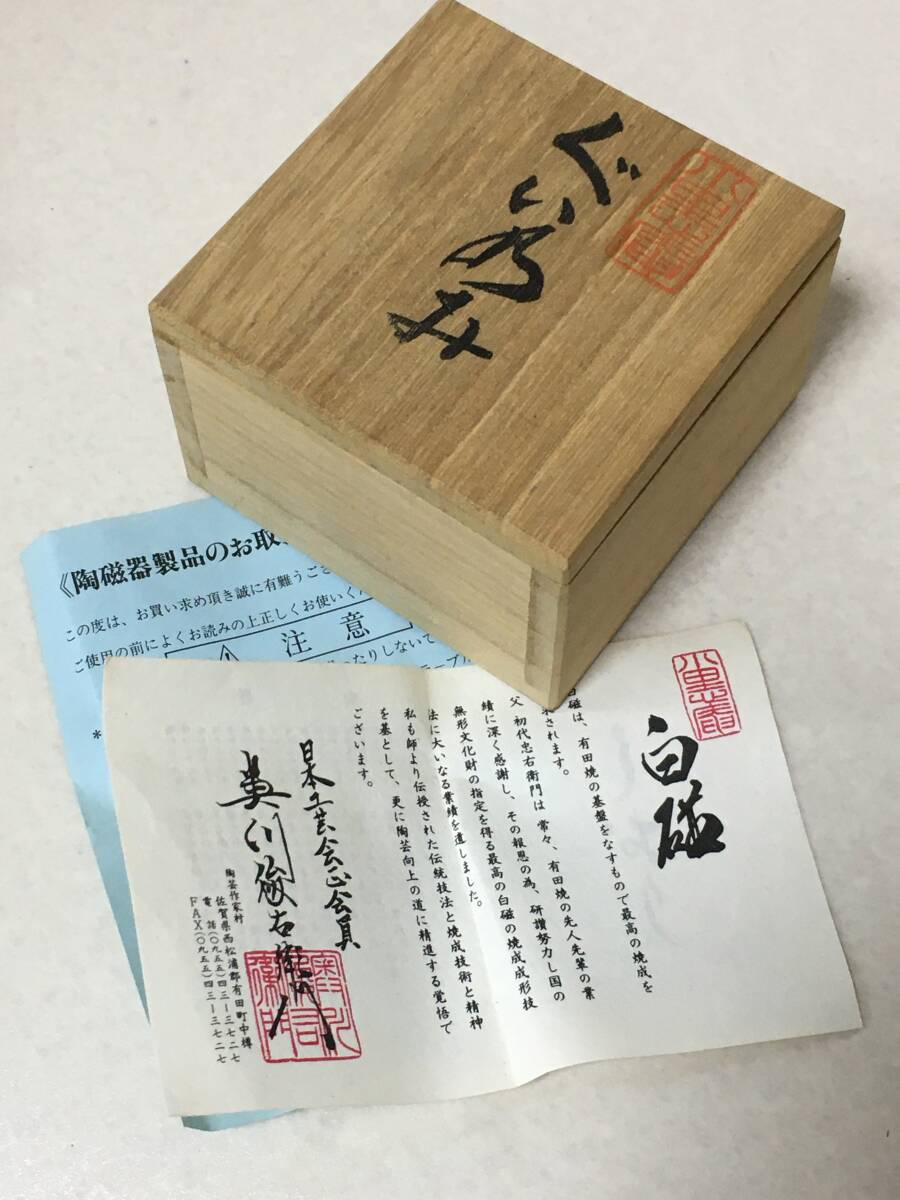 ぐい呑み
《陶磁器製品のお取
この度は、お買い求め頂き誠に有難うござ
ご使用の前によくお読みの上正しくお使いくだ
注意
ったりしないで
テーブル
*
白磁
白磁は、有田焼の基盤をなすもので最高の焼成を
求されます。
父 初代忠右衛門は常々、有田焼の先人先輩の業
績に深く感謝し、その報恩の為、研讃努力し国の
無形文化財の指定を得る最高の白磁の焼成成形技
法に大いなる業績を遺しました。
私も師より伝授された伝統技法と焼成技術と精神
を基として、更に陶芸向上の道に精進する覚悟で
ございます。
日本工芸会正会員
奥川俊右衛門
陶芸作家村
佐賀県西松浦郡有田町中樽
電話(〇九五五)四三ー三七二七
FAX(〇九五五)四三ー三七二七